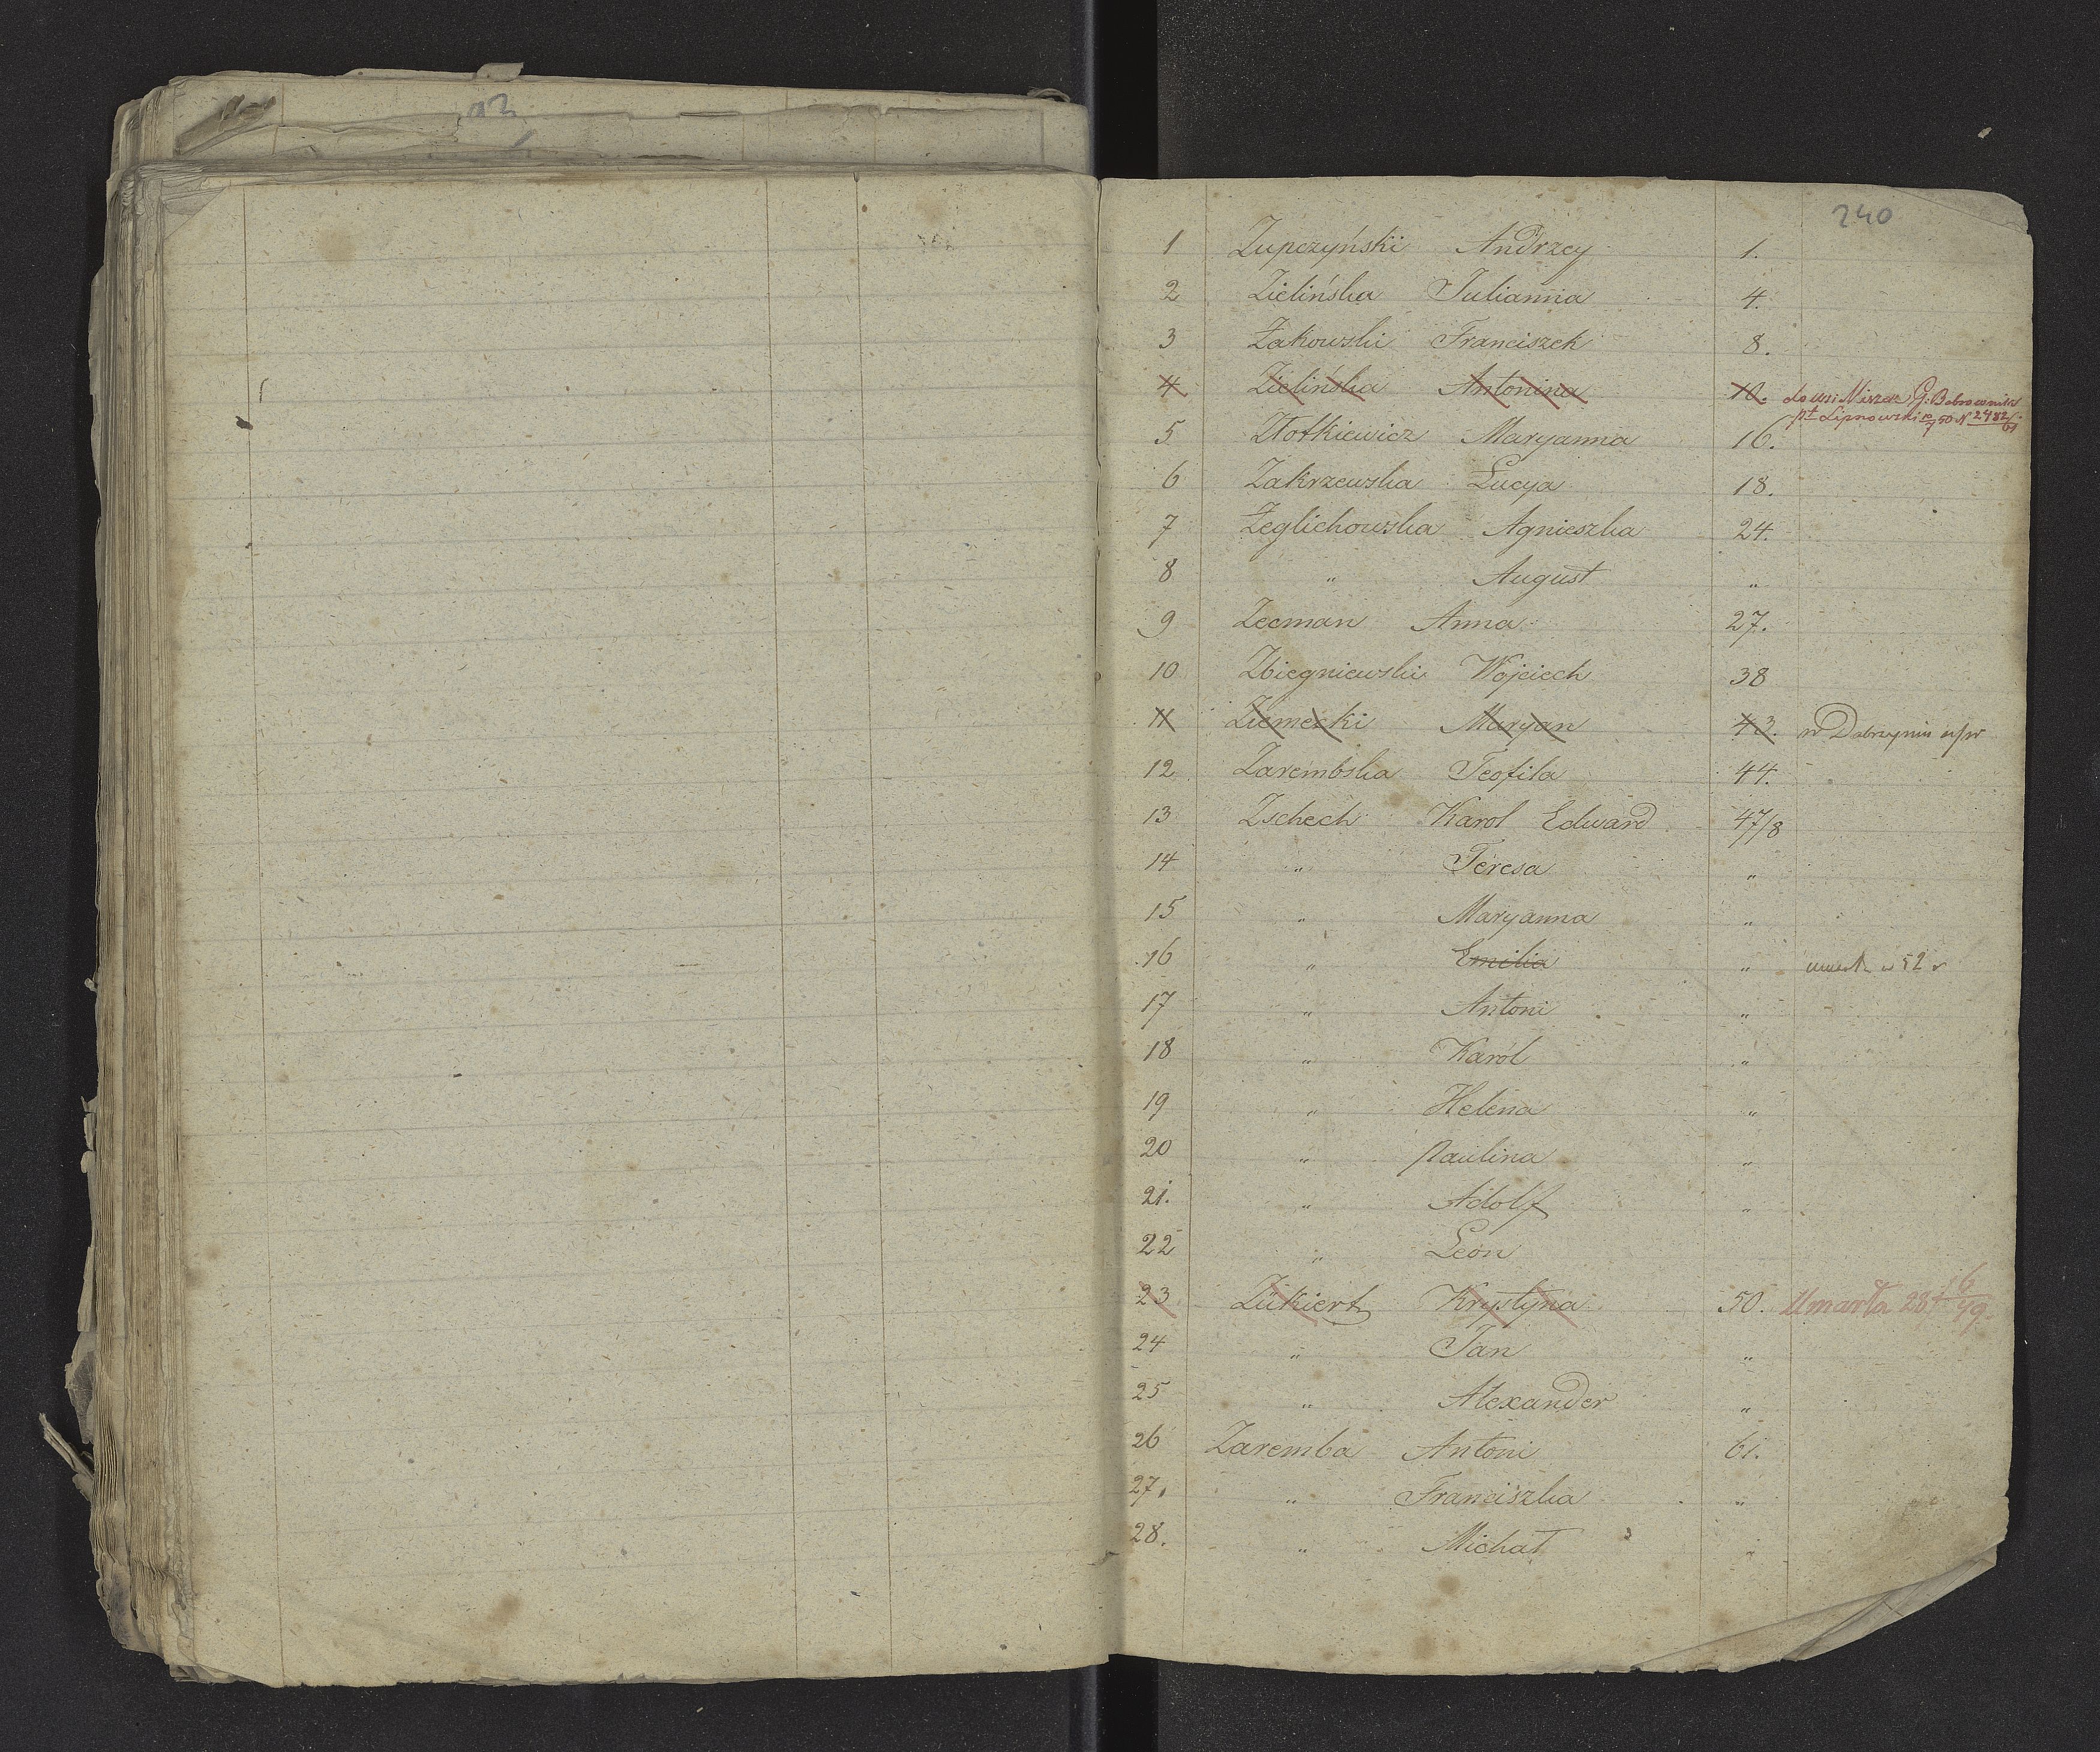 93
240
1 Zupczyński Andrzey 1.
2 Zielińska Julianna 4.
3 Żakowski Franciszek 8.
4 Zielińska Antonina 10. do wsi G. Bobrowniki
pt Lipnowski 50 N 2482/61
5 Złotkiewicz Maryanna 16.
6 Zakrzewska Łucya 18.
7 Żeglichowska Agnieszka 24.
8 „ August „
9 Zecman Anna 27.
10 Zbiegniewski Wojciech 38
11 Ziemecki Maryan 43. w Dobrzyniu n/w
12 Zarembska Teofila 44.
13 Zschech Karol Edward 47/8
14 „ Teresa „
15 „ Maryanna „
16 „ Emilia „ w 52 r
17 „ Antoni „
18 „ Karol „
19 „ Helena „
20 „ Paulina „
21. „ Adolf „
22 „ Leon
23 Zükiert Krystyna 50. Umarła 28 16/49
24 „ Jan „
25 „ Alexander „
26 Zaremba Antoni 61.
27. „ Franciszka „
28. „ Michał „